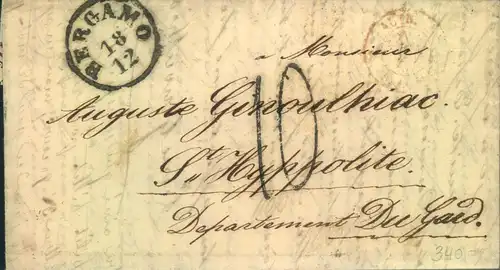 BERGAMO
18
12
a Monsieur
Auguste Ginoulhiac.
10
St. Hyppolite.
Departement Du Gard.
340